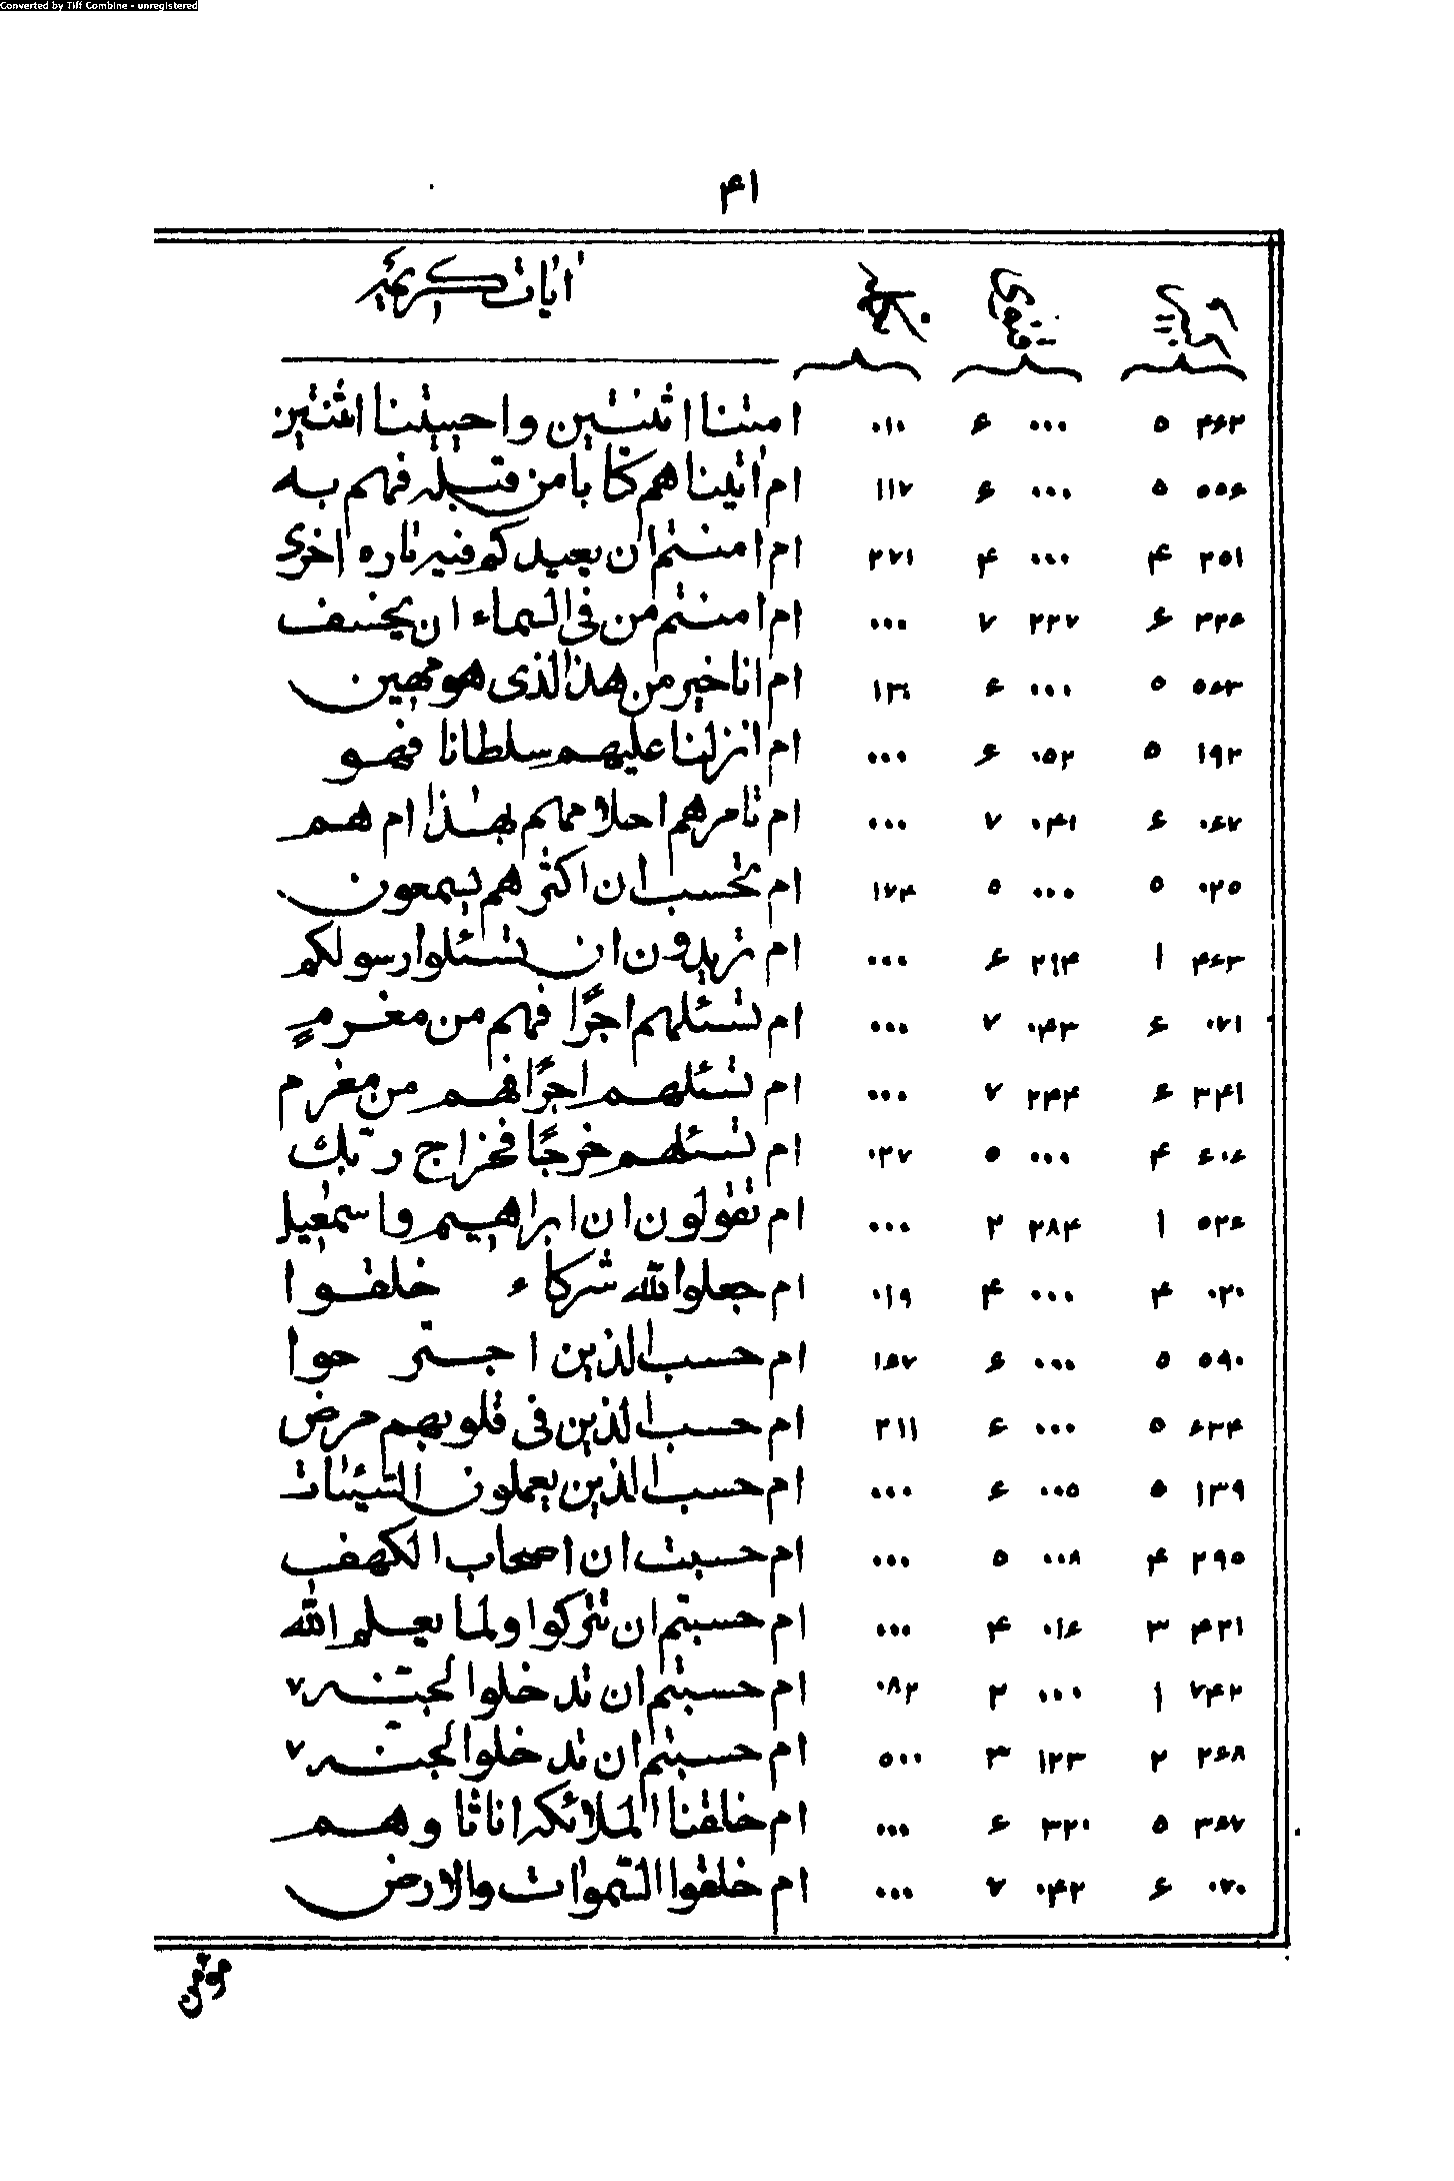 Converted by Tiff Combine - unregistered
۴۱
اٰیات کریمه
۴۶۲ ۵ ۰۰۰ ۶ ۰۱۰ امتنا اثنتین واحییتنا اثنتین
۵۵۶ ۵ ۰۰۰ ۶ ۱۱۷ ام اٰتیناهم کتابا من قبله فهم به
۲۵۱ ۴ ۰۰۰ ۴ ۲۷۱ ام امنتم ان یعیدکم فیه تارة اخری
۳۳۶ ۶ ۲۲۷ ۷ ۰۰۰ ام امنتم من فی السماء ان یخسف
۵۶۳ ۵ ۰۰۰ ۶ ۱۳۰ ام انا خیر من هذا الذی هو مهین
۱۹۲ ۵ ۰۵۲ ۶ ۰۰۰ ام انزلنا علیهم سلطانا فهو
۰۶۷ ۶ ۰۴۱ ۷ ۰۰۰ ام تامرهم احلامهم بهذا ام هم
۰۲۵ ۵ ۰۰۰ ۵ ۱۷۴ ام تحسب ان اکثرهم یسمعون
۴۶۳ ۱ ۲۱۴ ۶ ۰۰۰ ام تریدون ان تسئلوا رسولکم
۰۷۱ ۶ ۰۴۳ ۷ ۰۰۰ ام تسئلهم اجرًا فهم من مغرمٍ
۳۴۱ ۶ ۲۴۴ ۷ ۰۰۰ ام تسئلهم اجرًا فهم من مغرم
۶۰۶ ۴ ۰۰۰ ۵ ۰۲۷ ام تسئلهم خرجًا فخراج ربّک
۵۲۶ ۱ ۲۸۴ ۲ ۰۰۰ ام تقولون ان ابراهیم واسمٰعیل
۰۲۰ ۴ ۰۰۰ ۴ ۰۱۹ ام جعلوا لله شرکاء خلقوا
۵۹۰ ۵ ۰۰۰ ۶ ۱۵۷ ام حسب الذین اجترحوا
۶۳۴ ۵ ۰۰۰ ۶ ۲۱۱ ام حسب الذین فی قلوبهم مرض
۱۳۹ ۵ ۰۰۵ ۶ ۰۰۰ ام حسب الذین یعملون السّیئات
۲۹۵ ۴ ۰۰۸ ۵ ۰۰۰ ام حسبت ان اصحاب الکهف
۴۲۱ ۳ ۰۱۶ ۴ ۰۰۰ ام حسبتم ان تترکوا ولما یعلم الله
۷۴۲ ۱ ۰۰۰ ۲ ۰۸۲ ام حسبتم ان تدخلوا الجنّة ۷
۲۶۸ ۲ ۱۲۳ ۳ ۵۰۰ ام حسبتم ان تدخلوا الجنّة ۷
۳۵۷ ۵ ۳۲۰ ۶ ۰۰۰ ام خلقنا الملائکة اناثا وهم
۰۷۰ ۶ ۰۴۲ ۷ ۰۰۰ ام خلقوا السّموات والارض